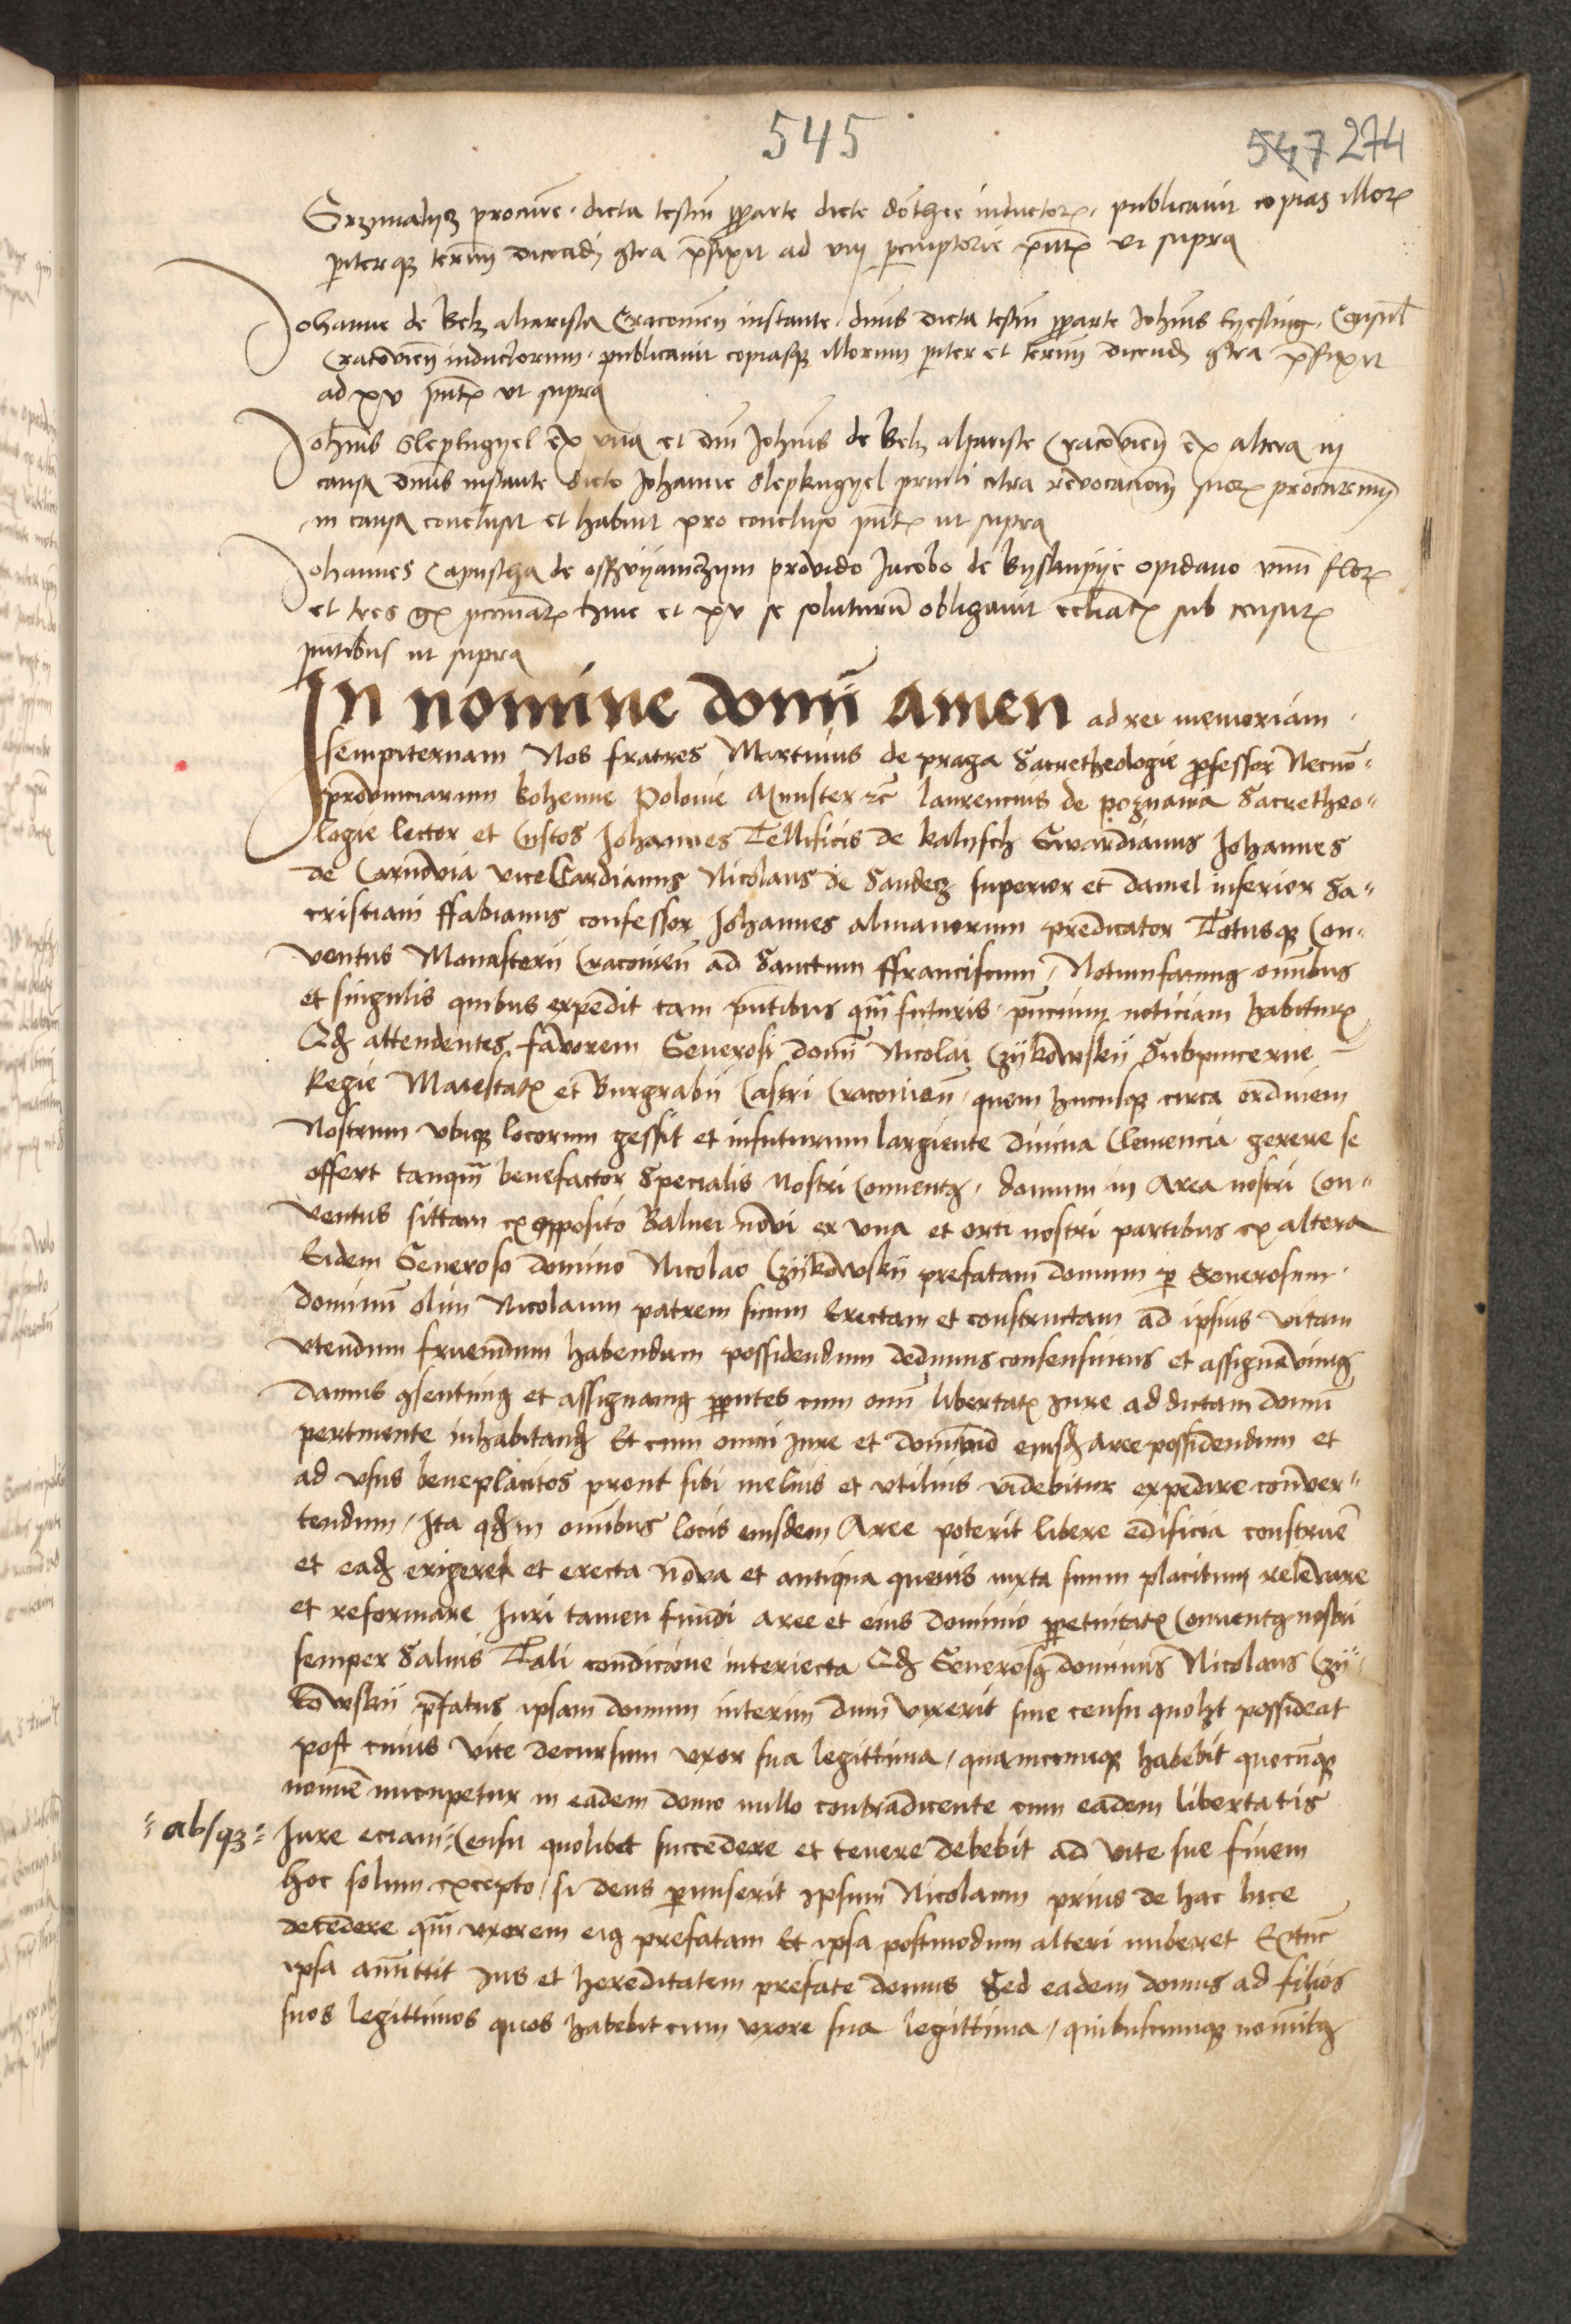 545
547 274
procure. dicta testiu pparte dicte dothee inductor. publicauit copias illor
piterqz termu dicendi gtra pfixit ad viij pemptorie pntx vt supra
Johanne de Belz altarista Cracouien instante dnus dicta testiu pparte Johnis
Cracouien inductorum. publicauit copiasqz illorum piter et termu dicend gtra pfixit
ad xv pntx vt supra
Johnis Slepkugyel ex vna et dni Johnis de Belz altariste Cracouien ex altera in
causa dnus instante dicto Johanne Slepkugyel citra reuocacionem suor procurm
in causa conclusit et habuit pro concluso pntx ut supra
Johannes Capustha de prouido Jacobo de opidano vnu flor
et tres gx hinc et xv se soluturu obligauit sub censur
pntibus ut supra
In nomine domi amen ad rei memoriam
sempiternam Nos fratres Martinus de praga Sacretheologie pfessor Necno=
prouinciarum bohemie Polonie Minister rc laurencius de poznania Sacretheo=
logie lector et Custos Johannes Tellificis de kalisch Gwardianus Johannes
de Carnovia viceGardianus Nicolaus de Sandecz superior et daniel inferior Sa=
cristiani ffabianus confessor Johannes almanorum predicator Totusqz Con=
ventus Monasterii Cracouien ad Sanctum ffranciscum, Notumfacimg omibus
et singulis quibus expedit tam pntibus qm futuris. pncium noticiam habitur
Qd attendentes favorem Generosi domi Nicolai Czykowskij Subpincerne
Regie Maiestatx et Burgrabij Castri Cracouien. quem hucusqz circa ordinem
Nostrum vbiqz locorum gessit et infuturum largiente diuina Clemencia gerere se
offert tanqm benefactor Specialis Nostri Conuentg. domum in Area nostri Con=
ventus sittam ex opposito Balnei novi ex vna et orti nostri partibus ex altera
Eidem Generoso domino Nicolao Czykowskij prefatam domum p Generosum
dominu olim Nicolaum patrem suum Erectam et constructam ad ipsius vitam
vtendum fruendum habendum possidendum dedimus consensimus et assignavimg
damus gsentimg et assignamg pputes cum omi libertatx Jure ad dictam domu
pertinente inhabitand Et cum omni Jure et dominio eiusd aree possidendum et
ad vsus beneplacitos prout sibi melius et vtilius videbitur expedire conver=
tendum, Ita qd in omibus locis eiusdem Aree poterit libere edificia construe
et ead erigere et erecta nova et antiqua quevis iuxta suum placitum relevare
et reformare Juri tamen fundi aree et eius dominio ppetuitatx Conuentg nostri
semper Saluis Tali condicione interiecta Qd Generosg dominus Nicolaus Czy=
kowskij pfatus ipsam domum interim dum vixerit sine censu quolzt possideat
post cuius vite decursum vxor sua legittima, quamcumqz habebit quocuqz
nomie nuncupetur in eadem domo nullo contradicente cum eadem libertatis
=absqz= Jure eciam = Censu quolibet succedere et tenere debebit ad vite sue finem
hoc solum excepto, si deus pmiserit ipsum Nicolaum prius de hac luce
decedere qm vxorem eig prefatam Et ipsa postmodum alteri nuberet Extuc
ipsa amittit Jus et hereditatem prefate domus Sed eadem domus ad filios
suos legittimos quos habebit cum vxore sua legittima, quibuscumqz nomitg